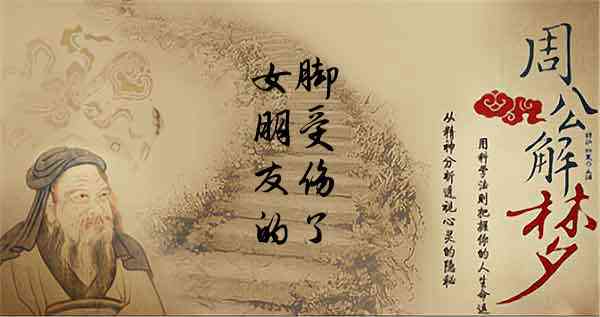 女朋友的
脚受伤了
周公解梦
用科学法则把握你的人生命运
从精神分析透视心灵的隐秘